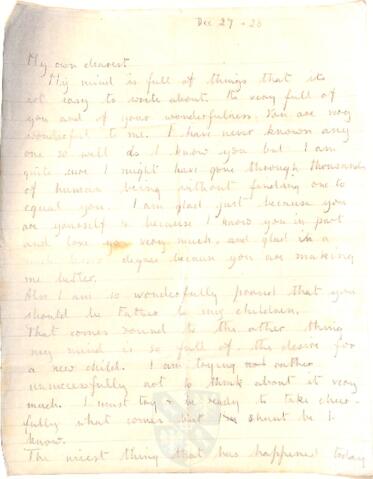 Dec 27 - 20
My own dearest
My mind is full of things that its
not easy to write about. Its very full of
you and of your wonderfulness. You are very
wonderful to me. I have never known any
one so well as I know you but I am
quite sure I might have gone through thousands
of human being without finding one to
equal you. I am glad just because you
are yourself & because I know you in part
and love you very much, and glad in a
much degree because you are making
me better.
Also I am so wonderfully proud that you
should be father to my children.
That comes round to this other thing
my mind is so full of, this desire for
a new child. I am trying rather
unsuccessfully not to think about it very
much. I must try & be ready to take cheer-
fully what comes but shant be I
know.
The nicest thing that has happened today